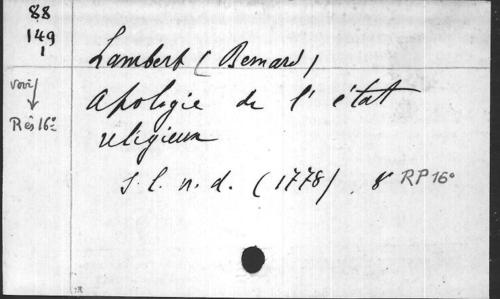 88
149
1
Lambert (Bernard)
voir
Rés 16°
Apologie de l'état
religieux
S. l. n. d. (1778) 8° RP 16°